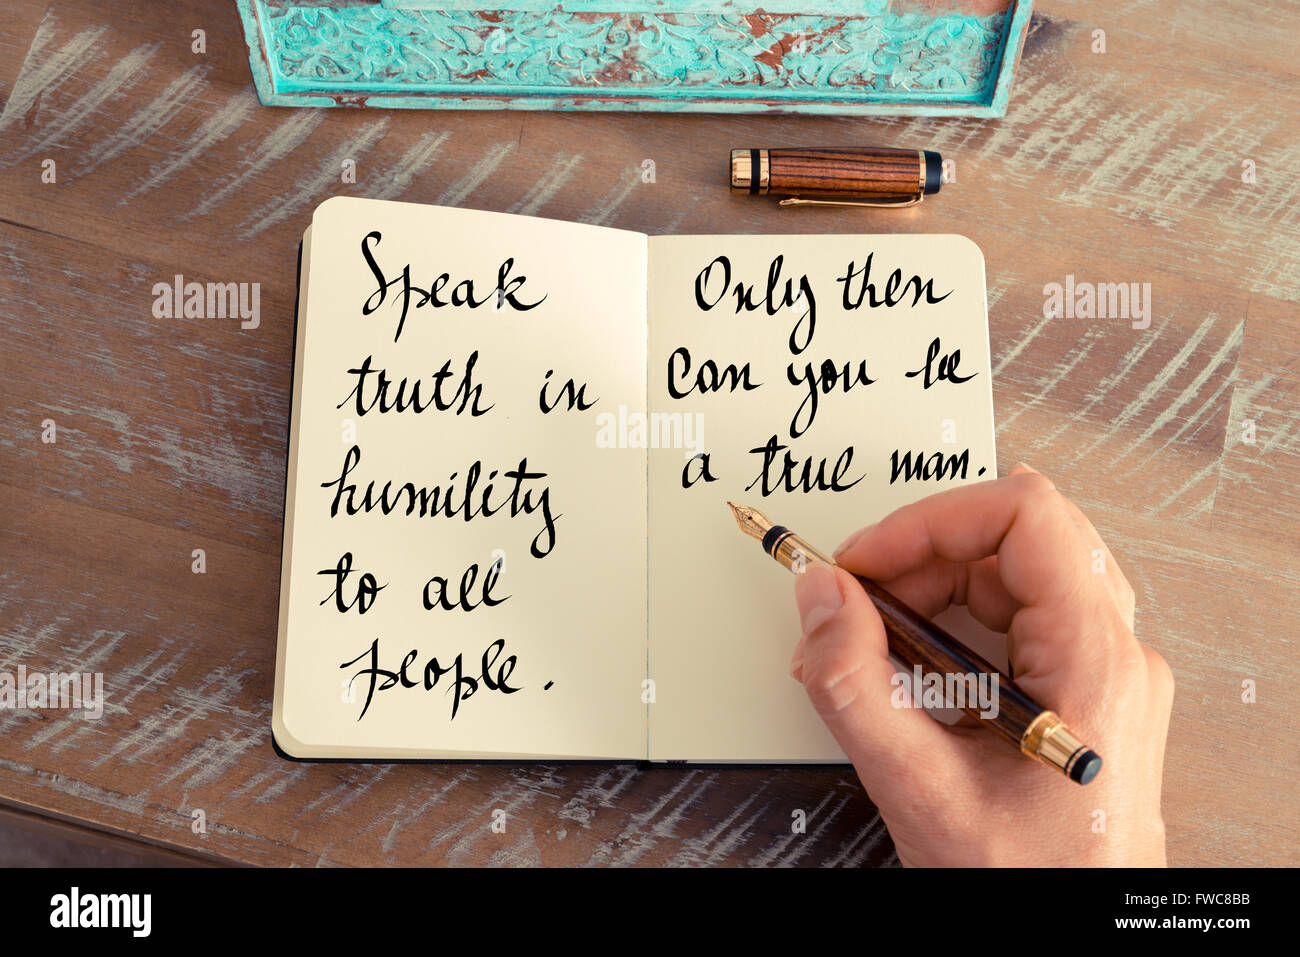 Speak
truth in
humility
to all
people.
Only then
can you be
a true man.
alamy
alamy
Image ID: FWC8BB
www.alamy.com